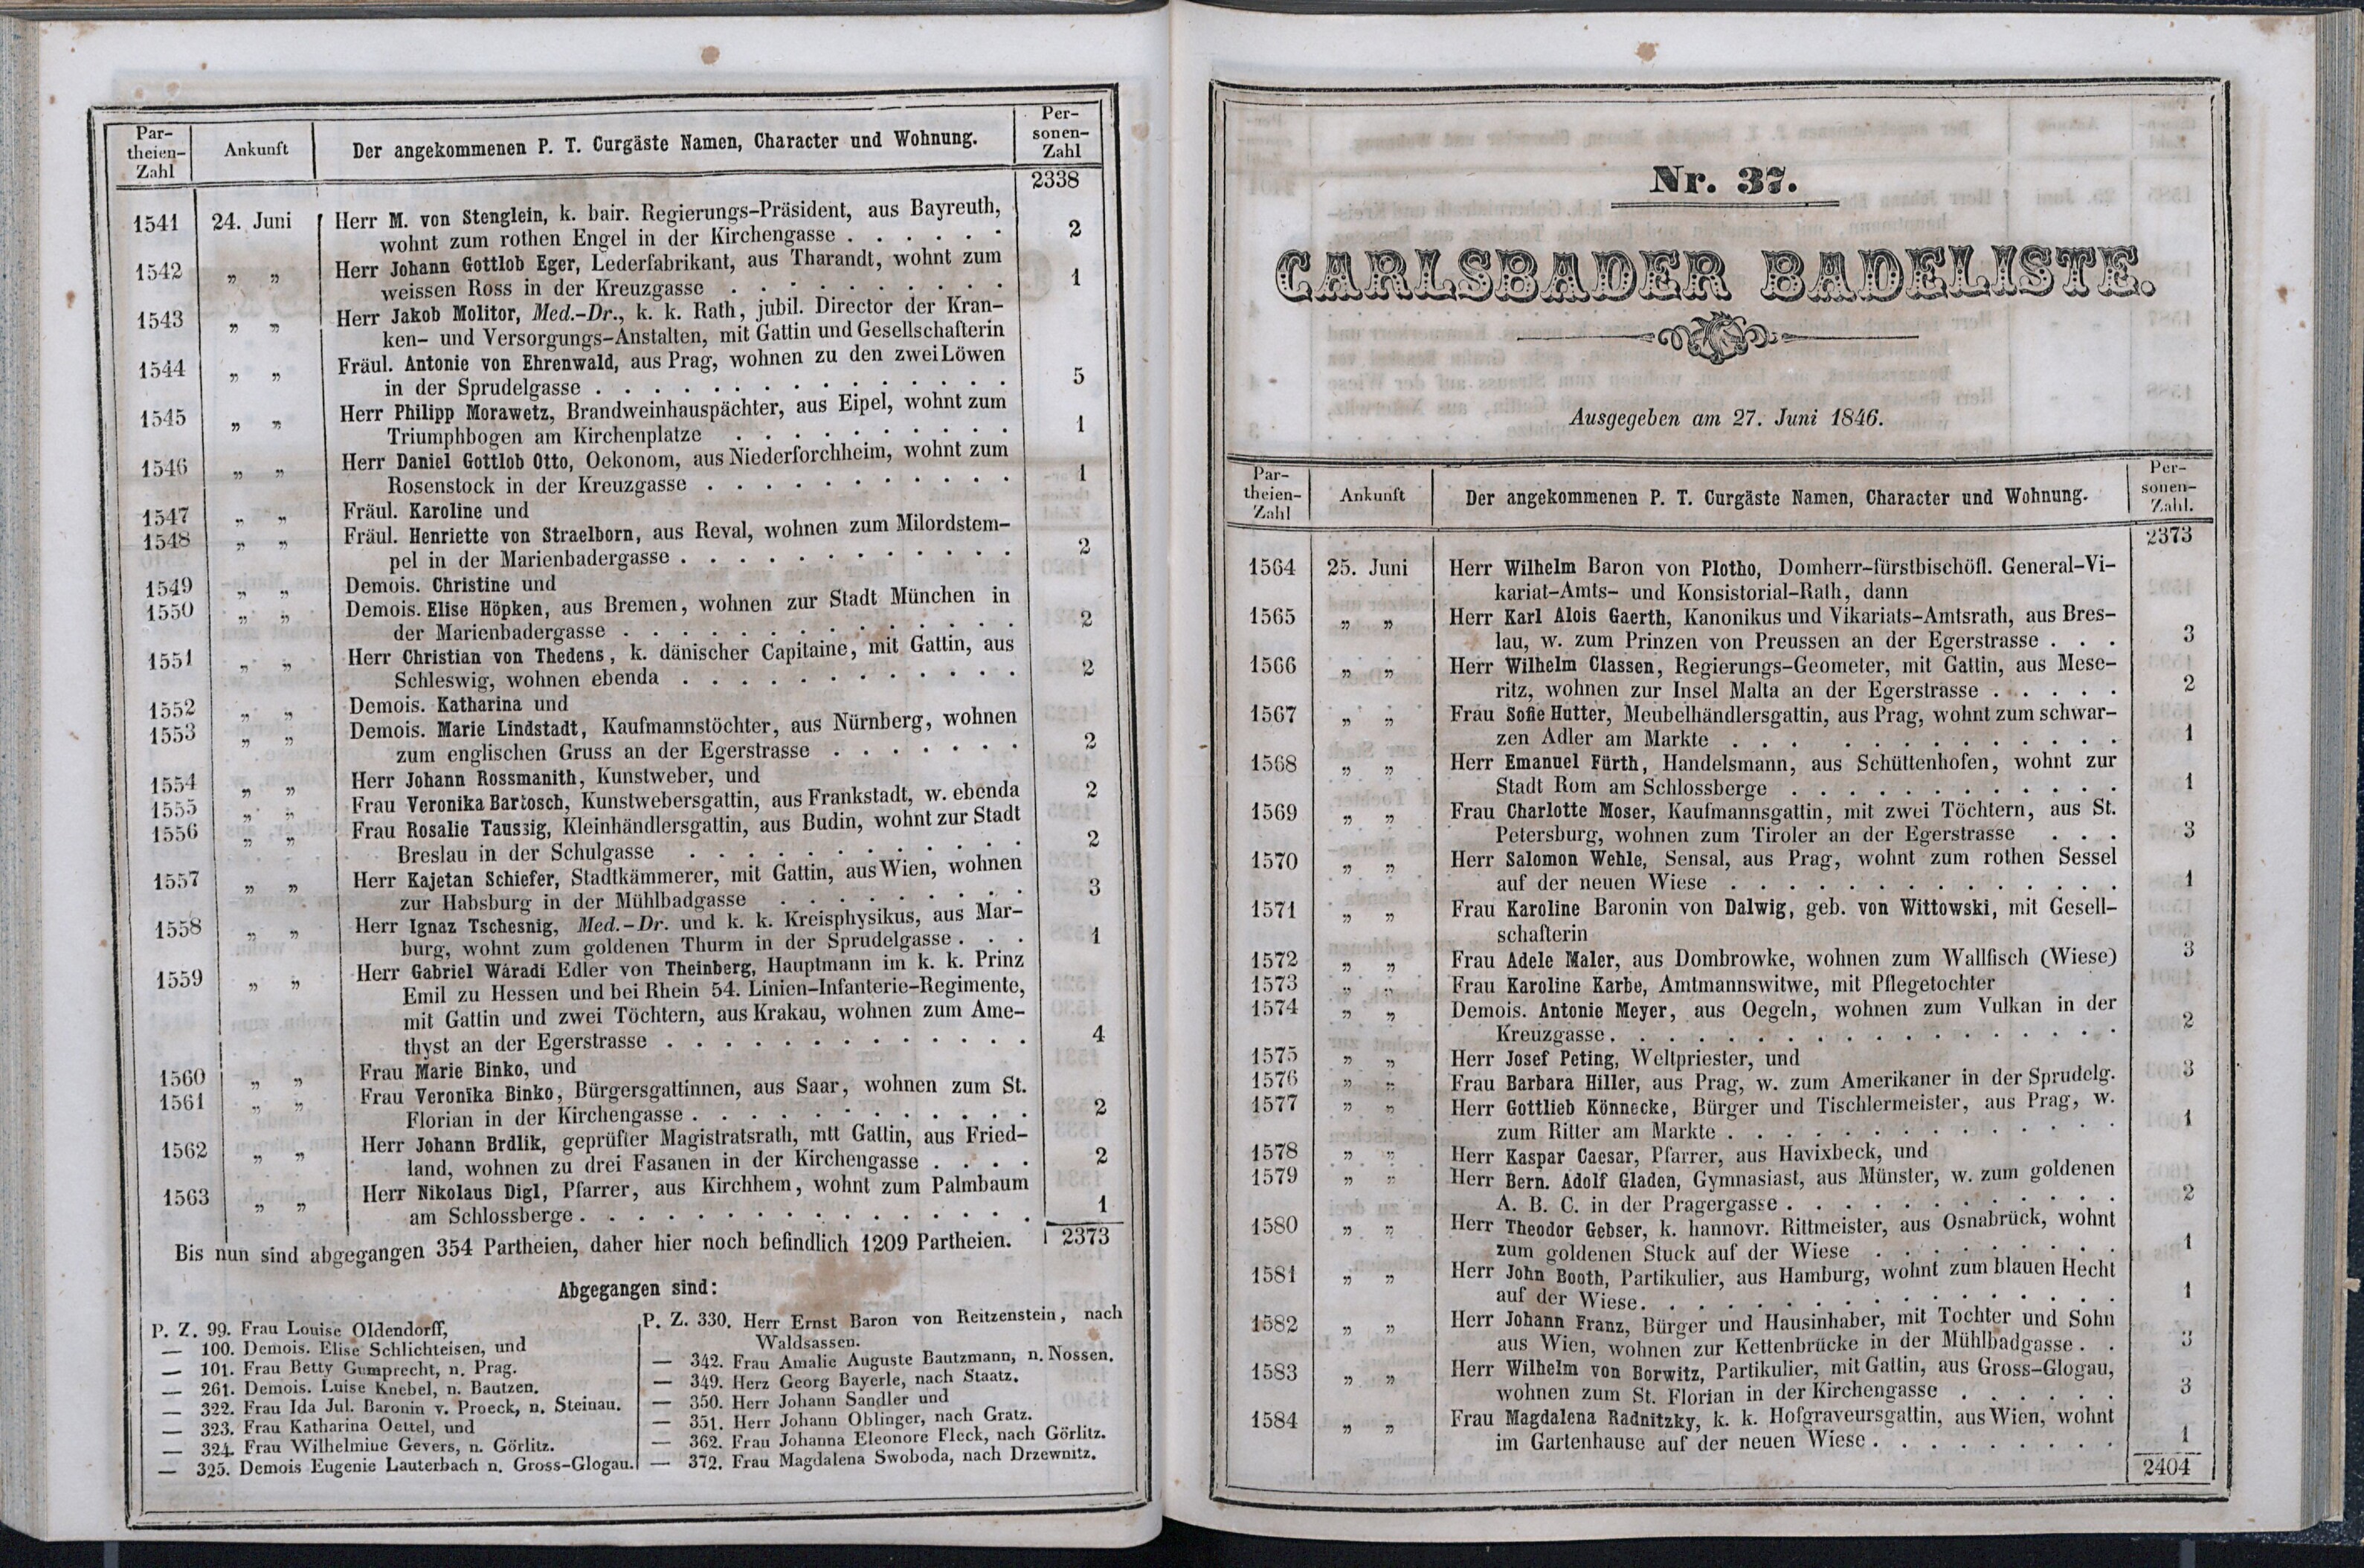 Par-
theien-
Zahl
Ankunft
Der angekommenen P. T. Curgäste Namen, Character und Wohnung.
Per-
sonen-
Zahl
2338
1541 24. Juni Herr M. von Stenglein, k. bair. Regierungs-Präsident, aus Bayreuth,
wohnt zum rothen Engel in der Kirchengasse . . . . . . 2
1542 „ „ Herr Johann Gottlob Eger, Lederfabrikant, aus Tharandt, wohnt zum
weissen Ross in der Kreuzgasse . . . . . . . . . . 1
1543 „ „ Herr Jakob Molitor, Med.-Dr., k. k. Rath, jubil. Director der Kran-
ken- und Versorgungs-Anstalten, mit Gattin und Gesellschafterin
1544 „ „ Fräul. Antonie von Ehrenwald, aus Prag, wohnen zu den zwei Löwen
in der Sprudelgasse . . . . . . . . . . . . . . 5
1545 „ „ Herr Philipp Morawetz, Brandweinhauspächter, aus Eipel, wohnt zum
Triumphbogen am Kirchenplatze . . . . . . . . . . 1
1546 „ „ Herr Daniel Gottlob Otto, Oekonom, aus Niederforchheim, wohnt zum
Rosenstock in der Kreuzgasse . . . . . . . . . . . 1
1547 „ „ Fräul. Karoline und
1548 „ „ Fräul. Henriette von Straelborn, aus Reval, wohnen zum Milordstem-
pel in der Marienbadergasse . . . . . . . . . . . . 2
1549 „ „ Demois. Christine und
1550 „ „ Demois. Elise Höpken, aus Bremen, wohnen zur Stadt München in
der Marienbadergasse . . . . . . . . . . . . . . 2
1551 „ „ Herr Christian von Thedens, k. dänischer Capitaine, mit Gattin, aus
Schleswig, wohnen ebenda . . . . . . . . . . . . 2
1552 „ „ Demois. Katharina und
1553 „ „ Demois. Marie Lindstadt, Kaufmannstöchter, aus Nürnberg, wohnen
zum englischen Gruss an der Egerstrasse . . . . . . . 2
1554 „ „ Herr Johann Rossmanith, Kunstweber, und
1555 „ „ Frau Veronika Bartosch, Kunstwebersgattin, aus Frankstadt, w. ebenda 2
1556 „ „ Frau Rosalie Taussig, Kleinhändlersgattin, aus Budin, wohnt zur Stadt
Breslau in der Schulgasse . . . . . . . . . . . . 2
1557 „ „ Herr Kajetan Schiefer, Stadtkämmerer, mit Gattin, aus Wien, wohnen
zur Habsburg in der Mühlbadgasse . . . . . . . . . 3
1558 „ „ Herr Ignaz Tschesnig, Med.-Dr. und k. k. Kreisphysikus, aus Mar-
burg, wohnt zum goldenen Thurm in der Sprudelgasse . . . 1
1559 „ „ Herr Gabriel Wáradi Edler von Theinberg, Hauptmann im k. k. Prinz
Emil zu Hessen und bei Rhein 54. Linien-Infanterie-Regimente,
mit Gattin und zwei Töchtern, aus Krakau, wohnen zum Ame-
thyst an der Egerstrasse . . . . . . . . . . . . . 4
1560 „ „ Frau Marie Binko, und
1561 „ „ Frau Veronika Binko, Bürgersgattinnen, aus Saar, wohnen zum St.
Florian in der Kirchengasse . . . . . . . . . . . . 2
1562 „ „ Herr Johann Brdlik, geprüfter Magistratsrath, mtt Gattin, aus Fried-
land, wohnen zu drei Fasanen in der Kirchengasse . . . . 2
1563 „ „ Herr Nikolaus Digl, Pfarrer, aus Kirchhem, wohnt zum Palmbaum
am Schlossberge . . . . . . . . . . . . . . . . 1
Bis nun sind abgegangen 354 Partheien, daher hier noch befindlich 1209 Partheien. 2373
Abgegangen sind:
P. Z. 99. Frau Louise Oldendorff,
— 100. Demois. Elise Schlichteisen, und
— 101. Frau Betty Gumprecht, n. Prag.
— 261. Demois. Luise Knebel, n. Bautzen.
— 322. Frau Ida Jul. Baronin v. Proeck, n. Steinau.
— 323. Frau Katharina Oettel, und
— 324. Frau Wilhelmiue Gevers, n. Görlitz.
— 325. Demois Eugenie Lauterbach n. Gross-Glogau.
P. Z. 330. Herr Ernst Baron von Reitzenstein, nach
Waldsassen.
— 342. Frau Amalie Auguste Bautzmann, n. Nossen.
— 349. Herz Georg Bayerle, nach Staatz.
— 350. Herr Johann Sandler und
— 351. Herr Johann Oblinger, nach Gratz.
— 362. Frau Johanna Eleonore Fleck, nach Görlitz.
— 372. Frau Magdalena Swoboda, nach Drzewnitz.
Nr. 37.
CARLSBADER BADELISTE.
Ausgegeben am 27. Juni 1846.
Par-
theien-
Zahl
Ankunft
Der angekommenen P. T. Curgäste Namen, Character und Wohnung.
Per-
sonen-
Zahl.
2373
1564 25. Juni Herr Wilhelm Baron von Plotho, Domherr-fürstbischöfl. General-Vi-
kariat-Amts- und Konsistorial-Rath, dann
1565 „ „ Herr Karl Alois Gaerth, Kanonikus und Vikariats-Amtsrath, aus Bres-
lau, w. zum Prinzen von Preussen an der Egerstrasse . . . 3
1566 „ „ Herr Wilhelm Classen, Regierungs-Geometer, mit Gattin, aus Mese-
ritz, wohnen zur Insel Malta an der Egerstrasse . . . . . 2
1567 „ „ Frau Sofie Hutter, Meubelhändlersgattin, aus Prag, wohnt zum schwar-
zen Adler am Markte . . . . . . . . . . . . . 1
1568 „ „ Herr Emanuel Fürth, Handelsmann, aus Schüttenhofen, wohnt zur
Stadt Rom am Schlossberge . . . . . . . . . . . . 1
1569 „ „ Frau Charlotte Moser, Kaufmannsgattin, mit zwei Töchtern, aus St.
Petersburg, wohnen zum Tiroler an der Egerstrasse . . . 3
1570 „ „ Herr Salomon Wehle, Sensal, aus Prag, wohnt zum rothen Sessel
auf der neuen Wiese . . . . . . . . . . . . . . 1
1571 „ „ Frau Karoline Baronin von Dalwig, geb. von Wittowski, mit Gesell-
schafterin
1572 „ „ Frau Adele Maler, aus Dombrowke, wohnen zum Wallfisch (Wiese) 3
1573 „ „ Frau Karoline Karbe, Amtmannswitwe, mit Pflegetochter
1574 „ „ Demois. Antonie Meyer, aus Oegeln, wohnen zum Vulkan in der
Kreuzgasse . . . . . . . . . . . . . . . . . . 2
1575 „ „ Herr Josef Peting, Weltpriester, und
1576 „ „ Frau Barbara Hiller, aus Prag, w. zum Amerikaner in der Sprudelg. 3
1577 „ „ Herr Gottlieb Könnecke, Bürger und Tischlermeister, aus Prag, w.
zum Ritter am Markte . . . . . . . . . . . . . . 1
1578 „ „ Herr Kaspar Caesar, Pfarrer, aus Havixbeck, und
1579 „ „ Herr Bern. Adolf Gladen, Gymnasiast, aus Münster, w. zum goldenen
A. B. C. in der Pragergasse . . . . . . . . . . . . 2
1580 „ „ Herr Theodor Gebser, k. hannovr. Rittmeister, aus Osnabrück, wohnt
zum goldenen Stuck auf der Wiese . . . . . . . . . 1
1581 „ „ Herr John Booth, Partikulier, aus Hamburg, wohnt zum blauen Hecht
auf der Wiese . . . . . . . . . . . . . . . . . 1
1582 „ „ Herr Johann Franz, Bürger und Hausinhaber, mit Tochter und Sohn
aus Wien, wohnen zur Kettenbrücke in der Mühlbadgasse . . 3
1583 „ „ Herr Wilhelm von Borwitz, Partikulier, mit Gattin, aus Gross-Glogau,
wohnen zum St. Florian in der Kirchengasse . . . . . . 3
1584 „ „ Frau Magdalena Radnitzky, k. k. Hofgraveursgattin, aus Wien, wohnt
im Gartenhause auf der neuen Wiese . . . . . . . . . 1
2404